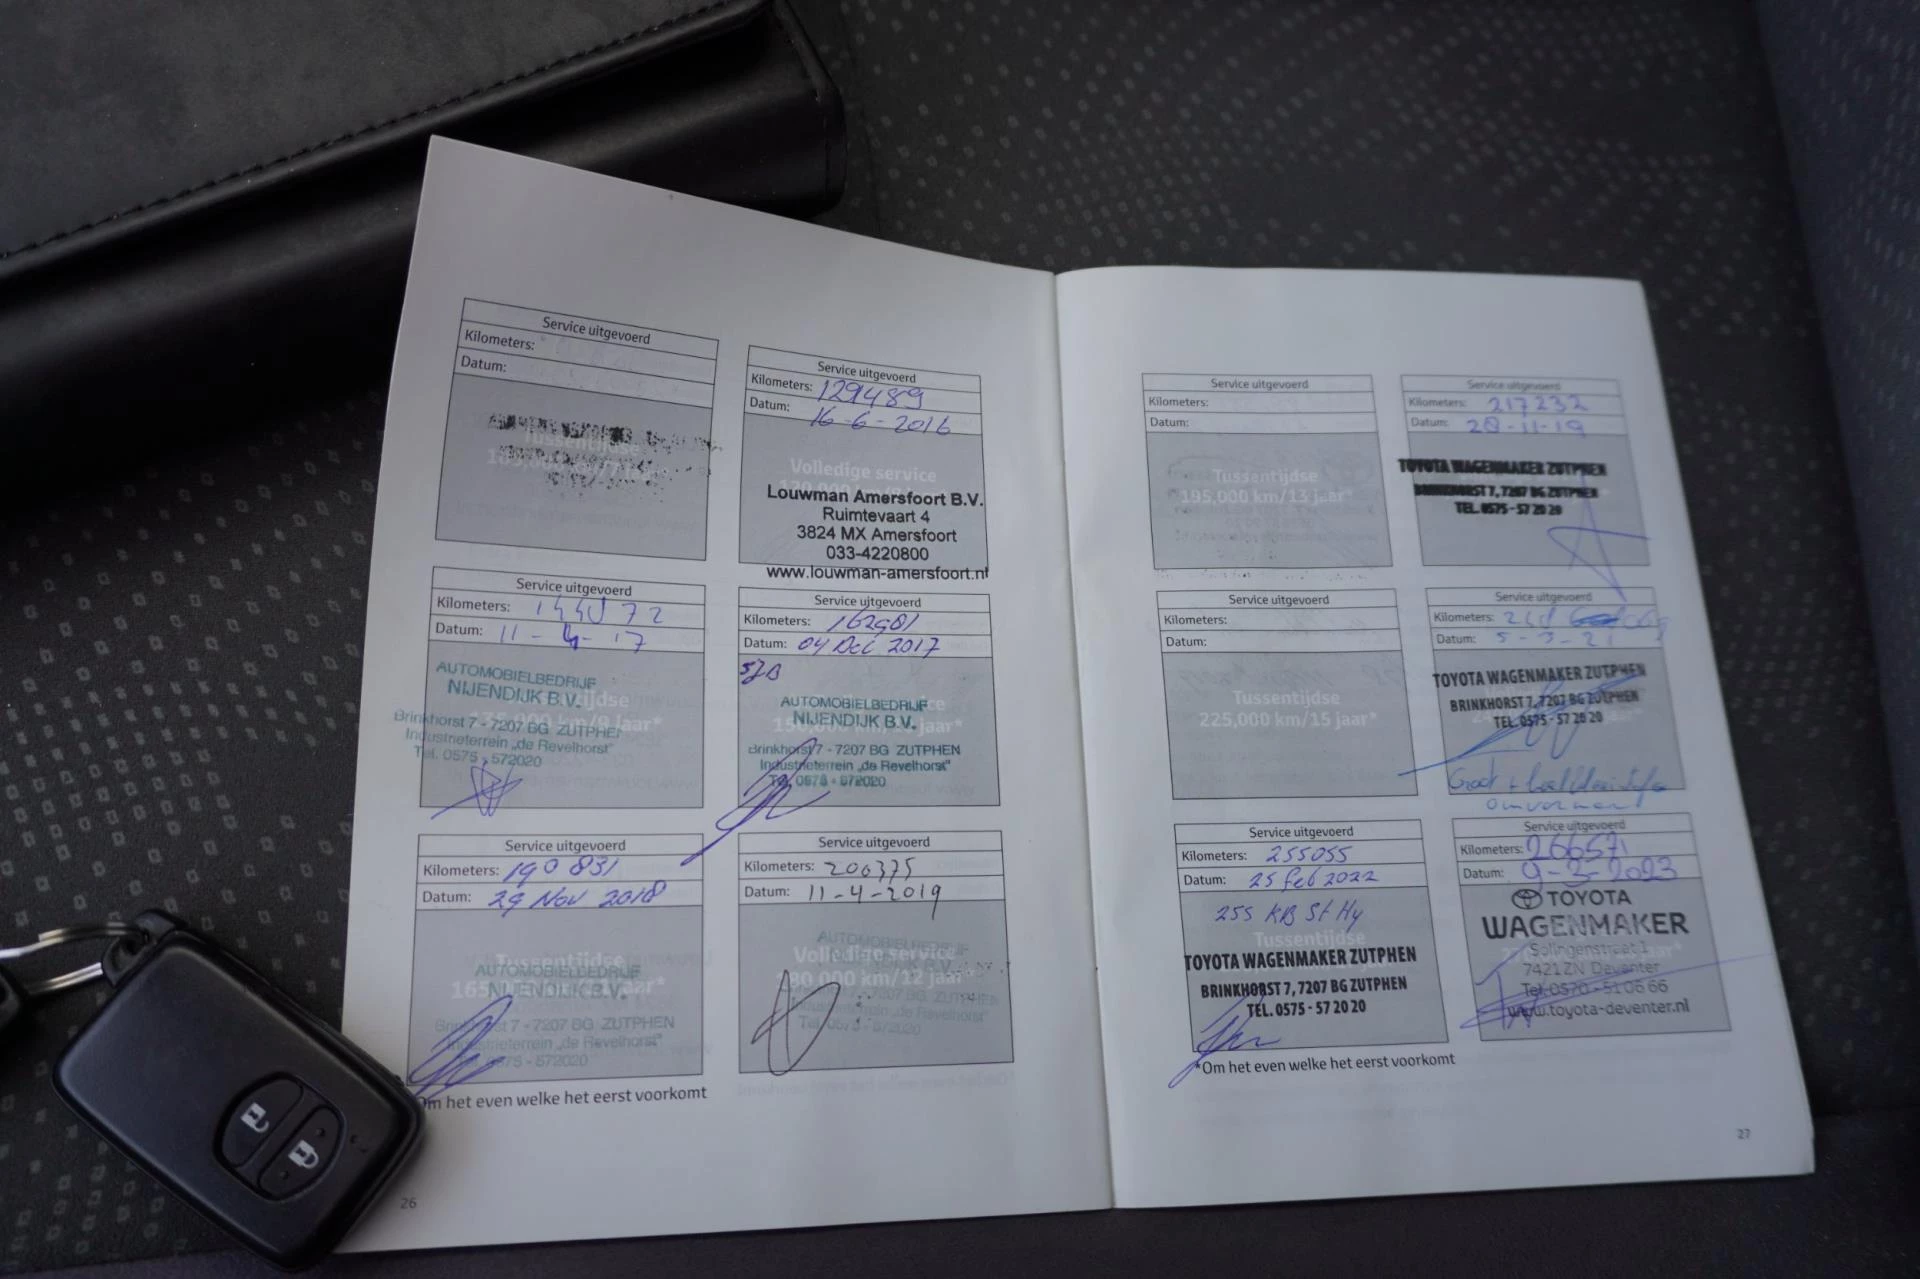 Service uitgevoerd
Kilometers:
Datum:
Tussentijdse
Service uitgevoerd
Kilometers: 129489
Datum: 16-6-2016
Volledige service
Louwman Amersfoort B.V.
Ruimtevaart 4
3824 MX Amersfoort
033-4220800
www.louwman-amersfoort.nl
Service uitgevoerd
Kilometers:
Datum: 11-4-17
AUTOMOBIELBEDRIJF
NIJENDIJK B.V.
km/9 jaar*
Brinkhorst 7 - 7207 BG ZUTPHEN
Industrieterrein „de Revelhorst"
Tel. 0575 - 572020
Service uitgevoerd
Kilometers: 162901
Datum: 04 Dec 2017
AUTOMOBIELBEDRIJF
NIJENDIJK B.V.
Brinkhorst 7 - 7207 BG ZUTPHEN
Industrieterrein „de Revelhorst"
Tel. 0575 - 572020
Service uitgevoerd
Kilometers: 190 831
Datum: 29 Nov 2018
Tussentijdse
AUTOMOBIELBEDRIJF
NIJENDIJK B.V.
Brinkhorst 7 - 7207 BG ZUTPHEN
Industrieterrein „de Revelhorst"
Tel. 0575 - 572020
Service uitgevoerd
Kilometers: 200375
Datum: 11-4-2019
AUTOMOBIELBEDRIJF
Volledige service
180,000 km/12 jaar*
7207 BG ZUTPHEN
„de Revelhorst"
Tel. 0575 - 572020
Om het even welke het eerst voorkomt
26
Service uitgevoerd
Kilometers:
Datum:
Tussentijdse
195,000 km/13 jaar*
Service uitgevoerd
Kilometers: 217232
Datum: 28-11-19
TOYOTA WAGENMAKER ZUTPHEN
BRINKHORST 7, 7207 BG ZUTPHEN
TEL. 0575 - 57 20 20
Service uitgevoerd
Kilometers:
Datum:
Tussentijdse
225,000 km/15 jaar*
Service uitgevoerd
Kilometers:
Datum: 5-3-21
TOYOTA WAGENMAKER ZUTPHEN
BRINKHORST 7, 7207 BG ZUTPHEN
TEL. 0575 - 57 20 20
Service uitgevoerd
Kilometers: 255055
Datum: 25 feb 2022
Tussentijdse
TOYOTA WAGENMAKER ZUTPHEN
BRINKHORST 7, 7207 BG ZUTPHEN
TEL. 0575 - 57 20 20
Service uitgevoerd
Kilometers: 266571
Datum: 9-3-2023
TOYOTA
WAGENMAKER
Solingenstraat 1
7421 ZN Deventer
Tel. 0570 - 51 06 66
www.toyota-deventer.nl
*Om het even welke het eerst voorkomt
27